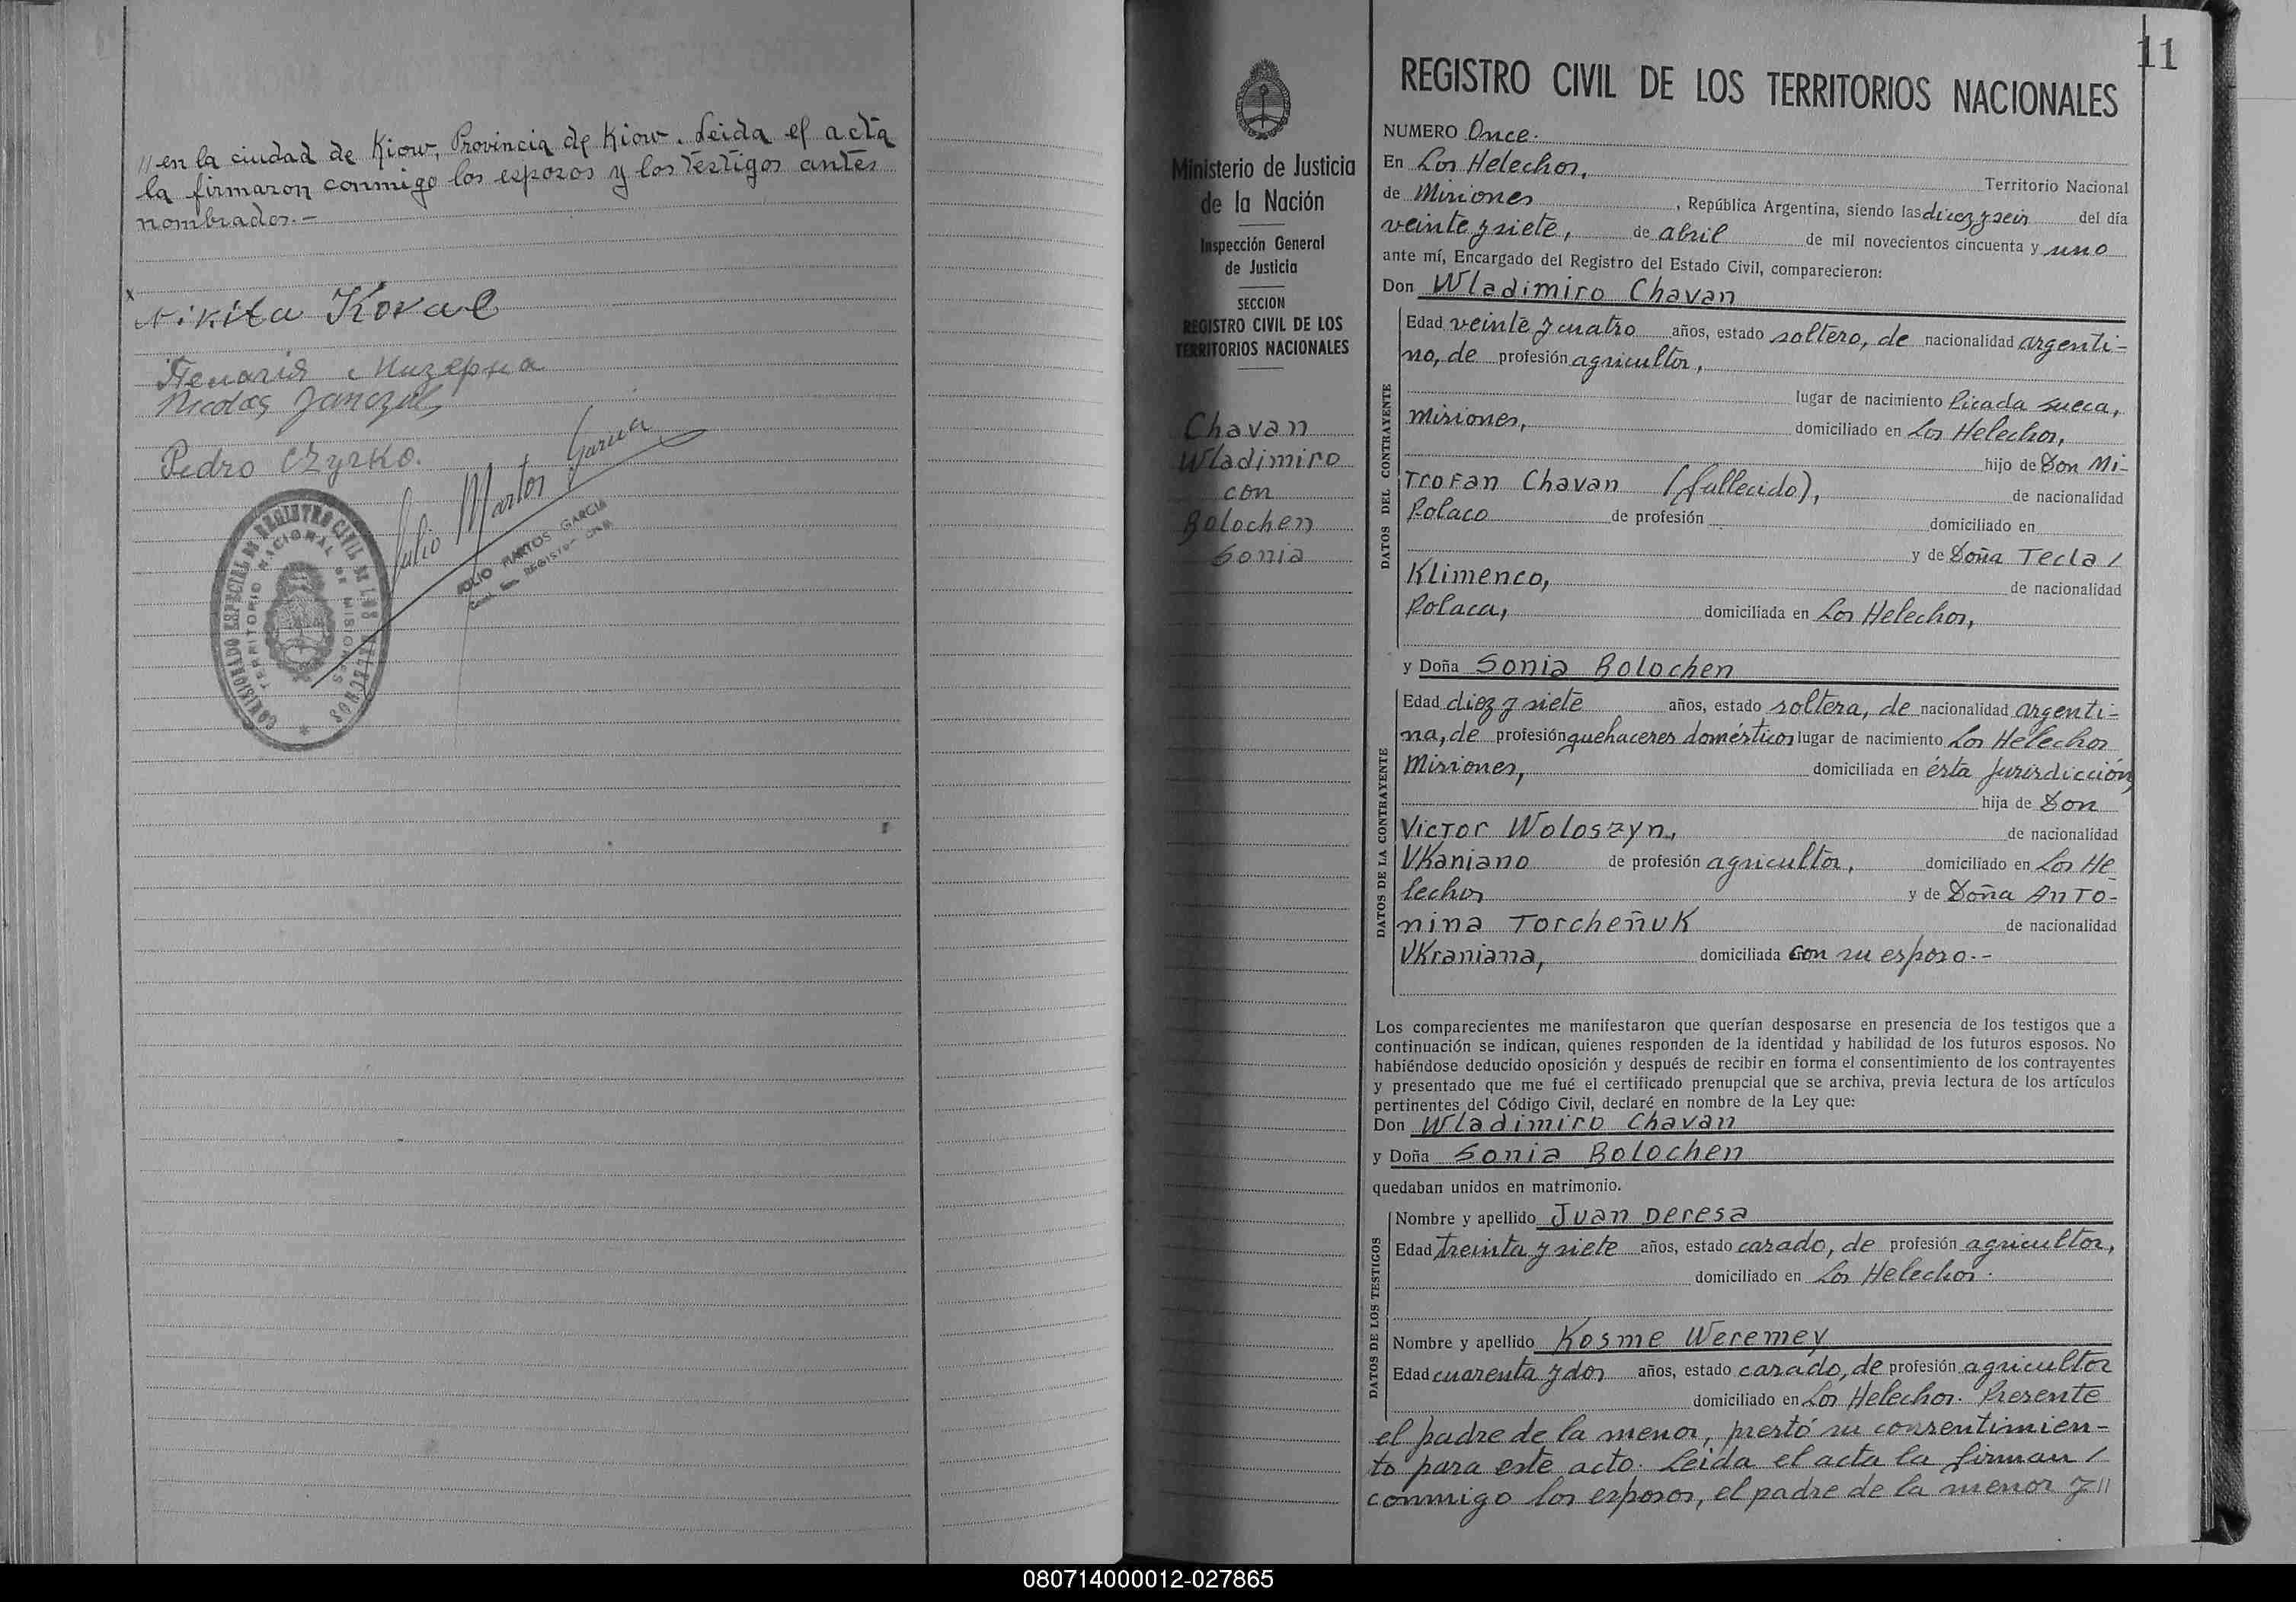 // en la ciudad de Kiow, Provincia de Kiow. Leida el acta
la firmaron conmigo los esposos y los testigos antes
nombrados.-
x
Nikita Koval
Nicolas
Pedro Czyrko.
Julio Martos Garcia
JULIO MARTOS GARCIA
COMISIONADO ESPECIAL DE REGISTRO CIVIL DE LOS HELECHOS
TERRITORIO NACIONAL DE MISIONES
11
Ministerio de Justicia
de la Nación
Inspección General
de Justicia
SECCION
REGISTRO CIVIL DE LOS
TERRITORIOS NACIONALES
Chavan
Wladimiro
con
Bolochen
Sonia
REGISTRO CIVIL DE LOS TERRITORIOS NACIONALES
NUMERO Once.
En Los Helechos, Territorio Nacional
de Misiones, República Argentina, siendo las diez y seis del día
veinte y siete, de abril de mil novecientos cincuenta y uno
ante mí, Encargado del Registro del Estado Civil, comparecieron:
Don Wladimiro Chavan
DATOS DEL CONTRAYENTE
Edad veinte y cuatro años, estado soltero, de nacionalidad argenti-
no, de profesión agricultor,
lugar de nacimiento Picada sueca,
Misiones, domiciliado en Los Helechos,
hijo de Don Mi-
Trofan Chavan (fallecido), de nacionalidad
Polaco de profesión domiciliado en
y de Doña Tecla /
Klimenco, de nacionalidad
Polaca, domiciliada en Los Helechos,
y Doña Sonia Bolochen
DATOS DE LA CONTRAYENTE
Edad diez y siete años, estado soltera, de nacionalidad argenti-
na, de profesión quehaceres domésticos lugar de nacimiento Los Helechos
Misiones, domiciliada en ésta Jurisdicción,
hija de Don
Victor Woloszyn, de nacionalidad
Ukaniano de profesión agricultor, domiciliado en Los He-
lechos y de Doña Anto-
nina Torcheñuk de nacionalidad
Ukraniana, domiciliada con su esposo.-
Los comparecientes me manifestaron que querían desposarse en presencia de los testigos que a
continuación se indican, quienes responden de la identidad y habilidad de los futuros esposos. No
habiéndose deducido oposición y después de recibir en forma el consentimiento de los contrayentes
y presentado que me fué el certificado prenupcial que se archiva, previa lectura de los artículos
pertinentes del Código Civil, declaré en nombre de la Ley que:
Don Wladimiro Chavan
y Doña Sonia Bolochen
quedaban unidos en matrimonio.
DATOS DE LOS TESTIGOS
Nombre y apellido Juan Deresa
Edad treinta y siete años, estado casado, de profesión agricultor,
domiciliado en Los Helechos.
Nombre y apellido Kosme Weremey
Edad cuarenta y dos años, estado casado, de profesión agricultor
domiciliado en Los Helechos. Presente
el padre de la menor, prestó su consentimien-
to para este acto. Leida el acta la firman /
conmigo los esposos, el padre de la menor y //
080714000012-027865